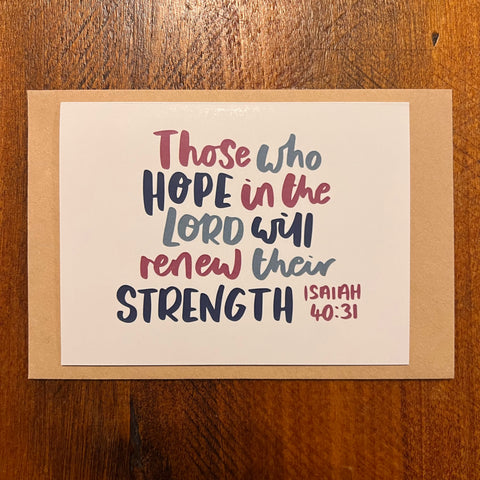 Those who
HOPE in the
LORD will
renew their
STRENGTH ISAIAH
40:31